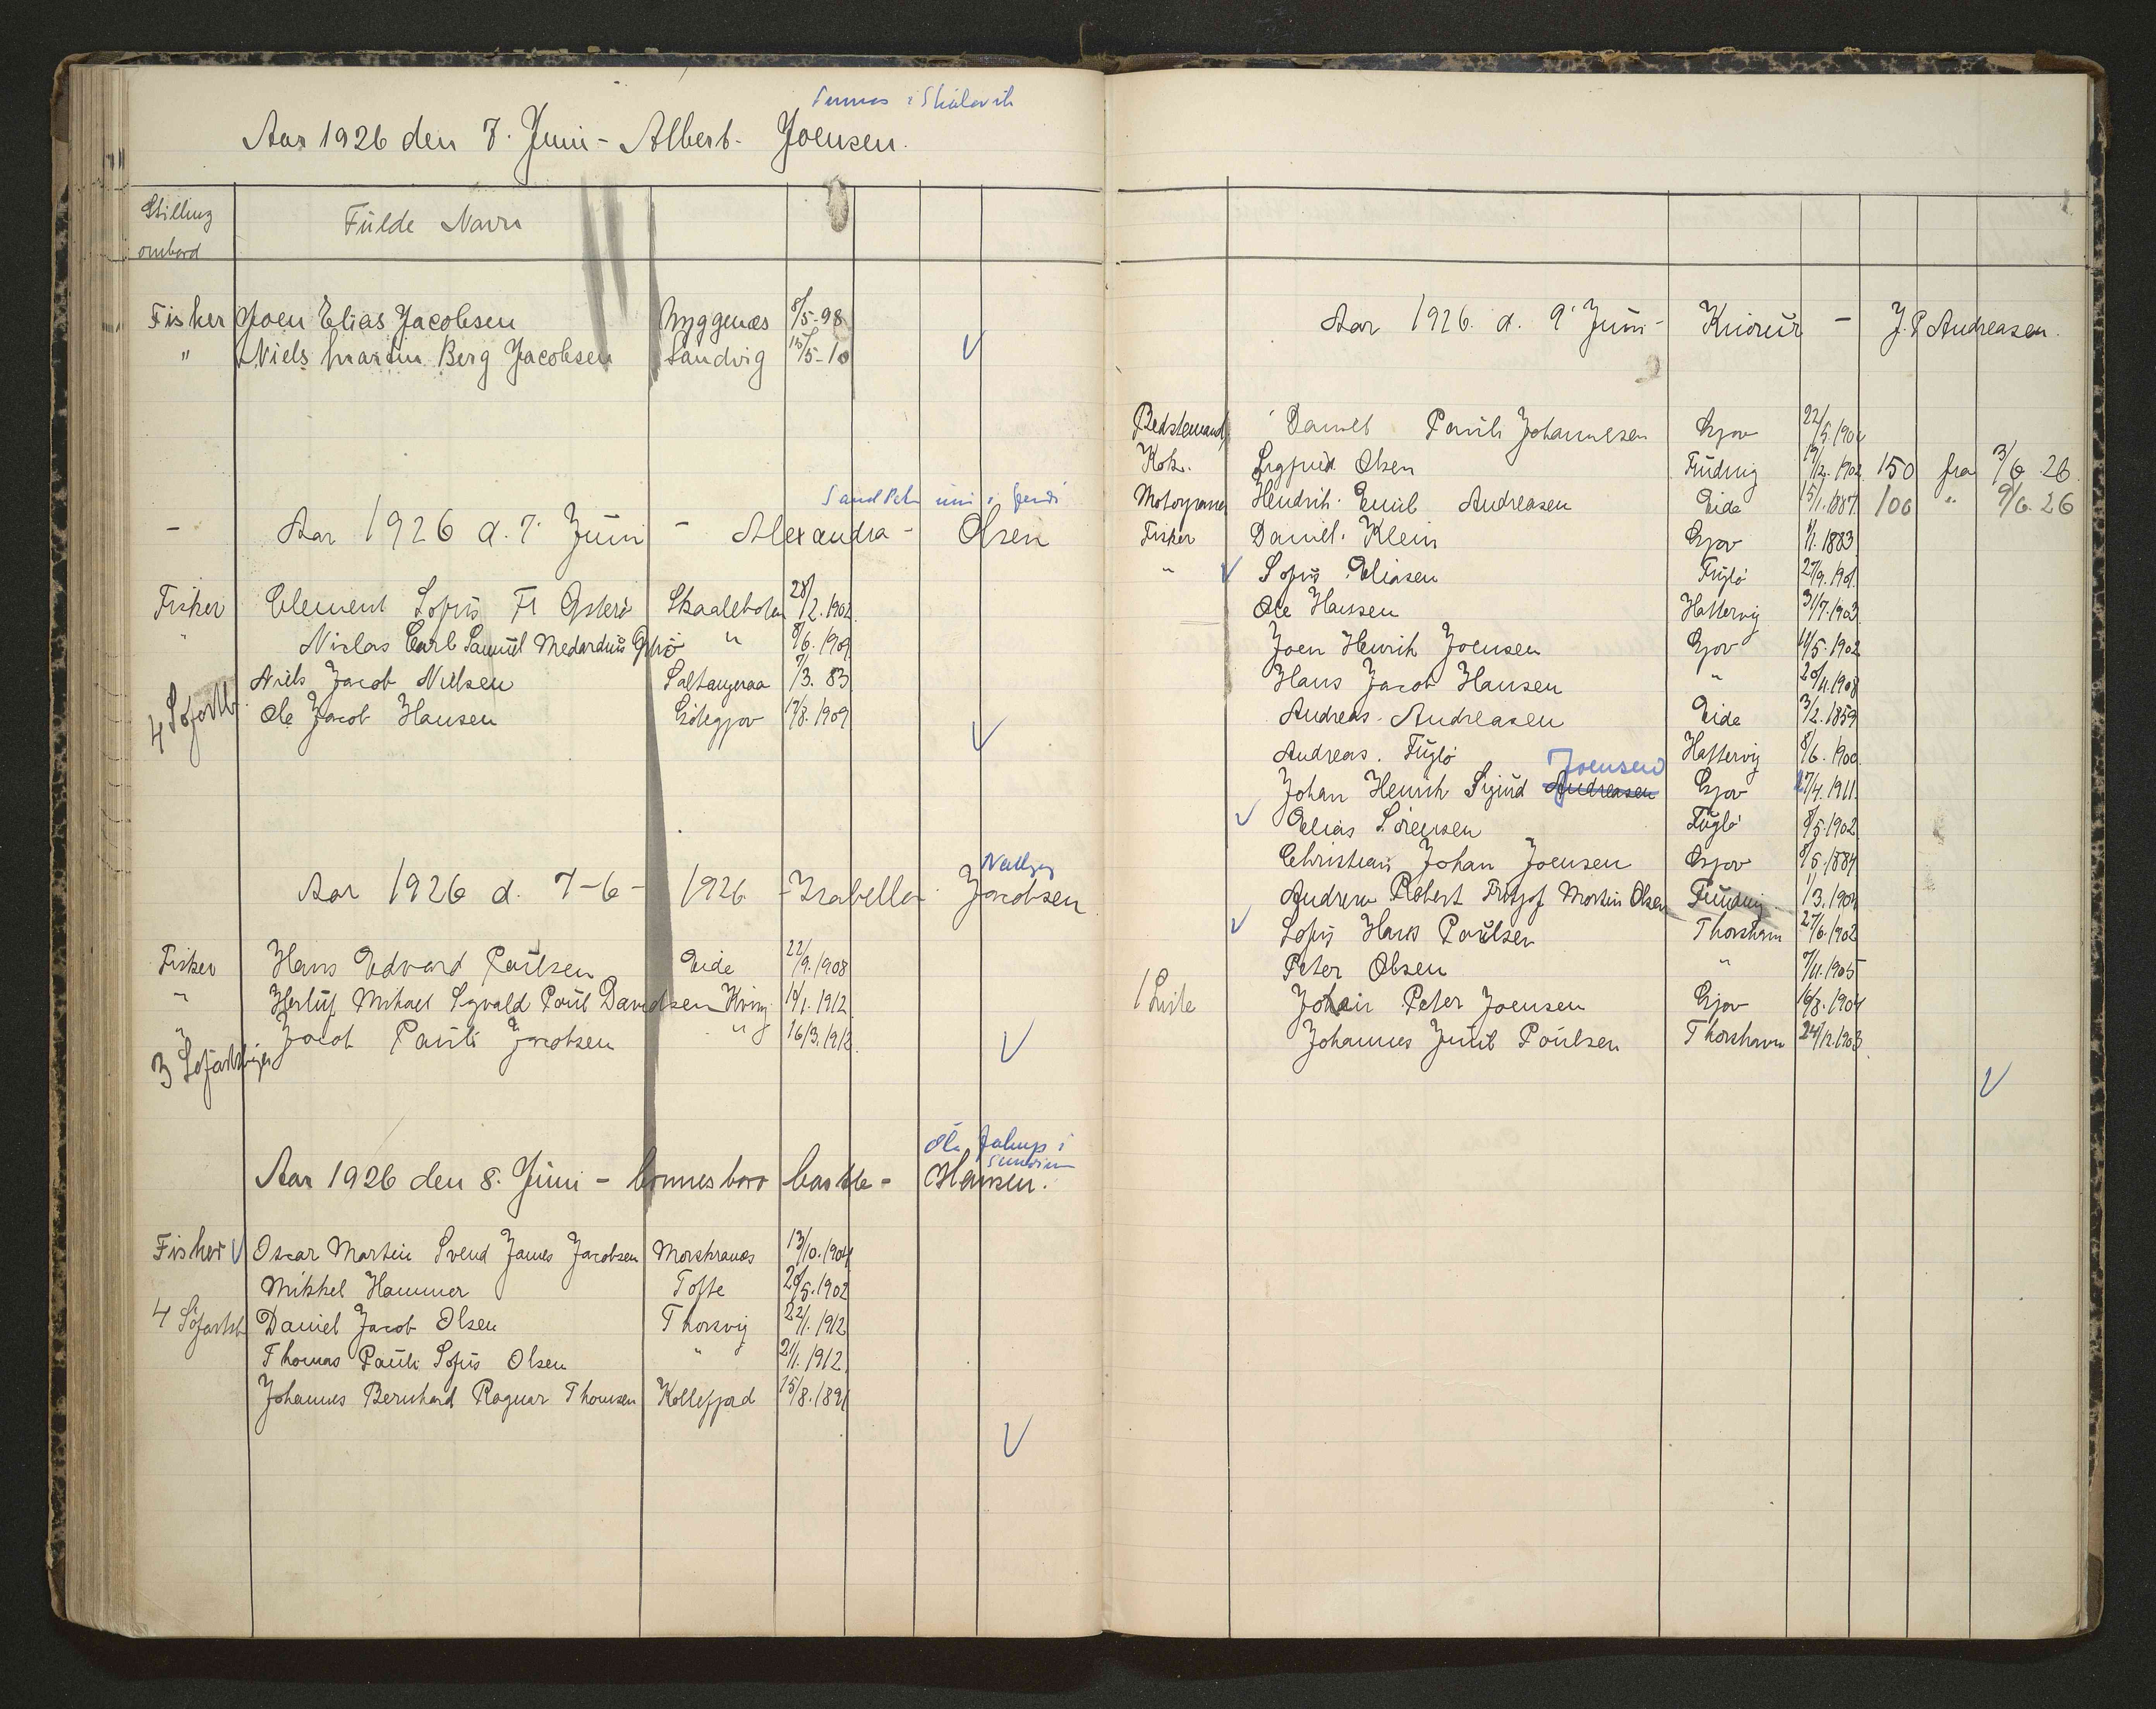 Aar 1926 den 7. Juni - Albert - Joensen.
Stilling ombord
Fulde Navn
Fisker Joen Elias Jacobsen Myggenæs 8/5-98
" Niels Martin Berg Jacobsen Sandvig 15/5-10
- Aar 1926 d. 7. Juni - Alexandra - Olsen
Fisker Clement Sofus Fr Østerö Skaalebotn 28/2.1902
" Niclas Carl Samuel Medardus 8/6.1909
Niels Jacob Nielsen Saltangeraa 7/3. 83
4 Søfartsb. Ole Jacob Hansen 1909
Aar 1926 d. 7-6- 1926 - Isabella - Jacobsen
Fisker Hans Edvard Poulsen Eide 22/9.1908
" Herluf Mikael Sigvald Poul Davidsen Kvivig 19/1.1912
" Jacob Pauli Jacobsen " 16/3.1912
3 Søfartsbøger
Aar 1926 den 8. Juni - Connesboro Castle - Hansen.
Fisker Oscar Martin Svend James Jacobsen Morskranæs 13/10.1904
Mikkel Hammer Tofte 1902
4 Søfartsb. Daniel Jacob Olsen Thorsvig 22/1.1912
Thomas Pauli Sofus Olsen " 21/1.1912
Johannes Bernhard Ragnar Thomsen Kollefjord 15/8.1891
Aar 1926. d. 9' Juni - Kniorur - J.P Andreasen.
Bedstemand Daniel Pauli Johannesen Gjov 22/5.
Kok. Sigfrid Olsen Fundnig 19/12.1902 150 fra 3/6.26
Motorpasser Hendrik Emil Andreasen Eide 15/1.1887. 100 " 9/6.26
Fisker Daniel. Klein Gjov 1/1.1883
" Sofus Eliasen Fuglö 27/9.1901.
Ole Hansen Hattervig 31/7.1903
Joen Henrik Joensen Gjov 11/5.1902
Hans Jacob Hansen " 20/11.1908
Andreas. Andreasen Eide 3/2.1859
Andreas. Fuglö Hattervig 8/6.1900
Johan Henrik Sigurd Andreasen Joensen Gjov 27/4.1911.
Elias Sörensen Fuglö 8/5.1902
Christian Johan Joensen Gjov 8/5.1884
Andrew Robert Fritjof Martin Olsen Fundnig 1/3.1904
Sofus Hans Poulsen Thorshavn 27/6.1902
Peter Olsen " 7/11.1905
Johan Peter Joensen Gjov 16/8.1904
Johannes Juul Poulsen Thorshavn 24/12.1903